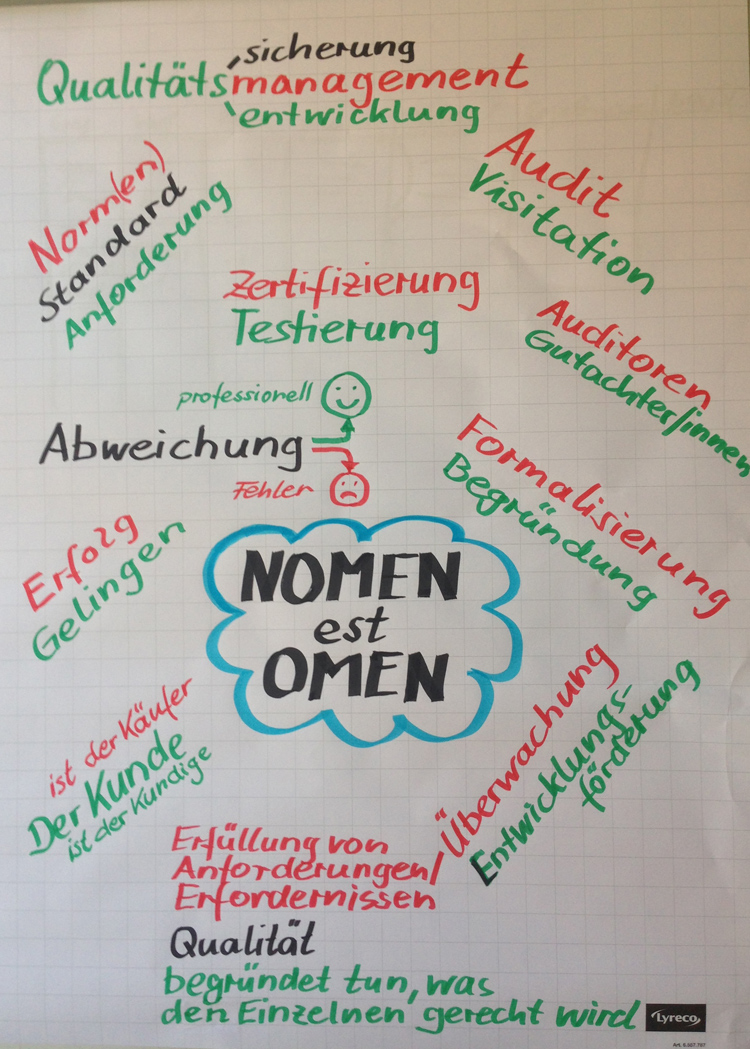 sicherung
Qualitätsmanagement
entwicklung
Norm(en)
Standard
Anforderung
Audit
Visitation
Zertifizierung
Testierung
Auditoren
Gutachter/innen
professionell
Abweichung
Fehler
Formalisierung
Begründung
Erfolg
Gelingen
NOMEN
est
OMEN
ist der Käufer
Der Kunde
ist der Kundige
Überwachung
Entwicklungs-
förderung
Erfüllung von
Anforderungen/
Erfordernissen
Qualität
begründet tun, was
den Einzelnen gerecht wird
Lyreco
Art. 6.667.797